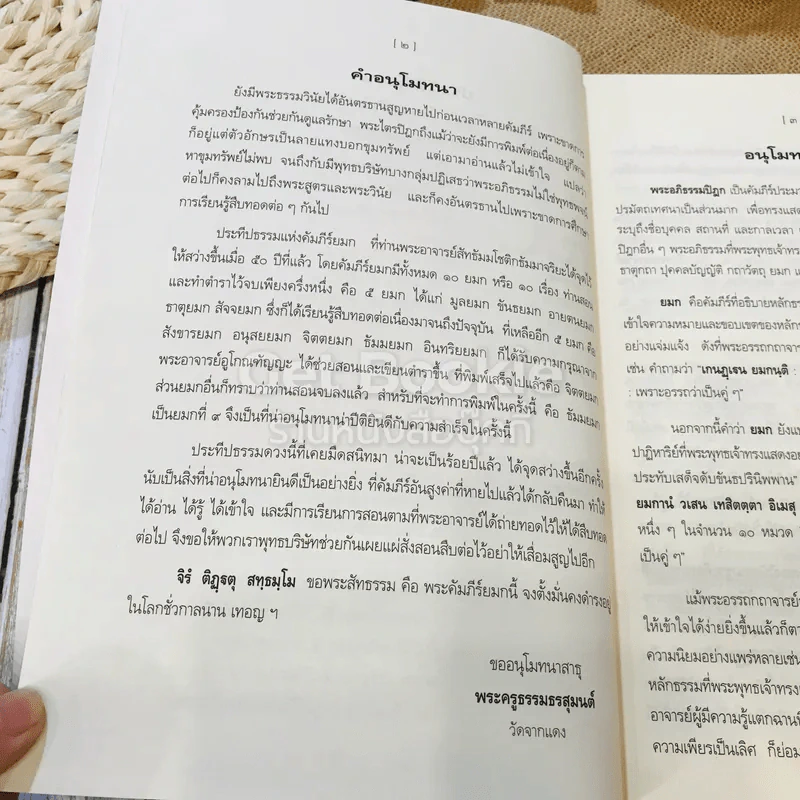 [ ๒ ]
คำอนุโมทนา
ยังมีพระธรรมวินัยได้อันตรธานสูญหายไปก่อนเวลาหลายคัมภีร์ เพราะขาดการ
คุ้มครองป้องกันช่วยกันดูแลรักษา พระไตรปิฎกถึงแม้ว่าจะยังมีการพิมพ์ต่อเนื่องอยู่
ก็อยู่แต่ตัวอักษรเป็นลายแทงบอกขุมทรัพย์ แต่เอามาอ่านแล้วไม่เข้าใจ แปลว่า
หาขุมทรัพย์ไม่พบ จนถึงกับมีพุทธบริษัทบางกลุ่มปฏิเสธว่าพระอภิธรรมไม่ใช่พุทธพจน์
ต่อไปก็คงลามไปถึงพระสูตรและพระวินัย และก็คงอันตรธานไปเพราะขาดการศึกษา
การเรียนรู้สืบทอดต่อ ๆ กันไป
ประทีปธรรมแห่งคัมภีร์ยมก ที่ท่านพระอาจารย์สัทธัมมโชติกธัมมาจริยะได้จุดไว้
ให้สว่างขึ้นเมื่อ ๕๐ ปีที่แล้ว โดยคัมภีร์ยมกมีทั้งหมด ๑๐ ยมก หรือ ๑๐ เรื่อง ท่านสอน
และทำตำราไว้จบเพียงครึ่งหนึ่ง คือ ๕ ยมก ได้แก่ มูลยมก ขันธยมก อายตนยมก
ธาตุยมก สัจจยมก ซึ่งก็ได้เรียนรู้สืบทอดต่อเนื่องมาจนถึงปัจจุบัน ที่เหลืออีก ๕ ยมก คือ
สังขารยมก อนุสยยมก จิตตยมก ธัมมยมก อินทริยยมก ก็ได้รับความกรุณาจาก
พระอาจารย์อูโกณฑัญญะ ได้ช่วยสอนและเขียนตำราขึ้น ที่พิมพ์เสร็จไปแล้วคือ จิตตยมก
ส่วนยมกอื่นก็ทราบว่าท่านสอนจบลงแล้ว สำหรับที่จะทำการพิมพ์ในครั้งนี้ คือ ธัมมยมก
เป็นยมกที่ ๙ จึงเป็นที่น่าอนุโมทนาน่าปีติยินดีกับความสำเร็จในครั้งนี้
ประทีปธรรมดวงนี้ที่เคยมืดสนิทมา น่าจะเป็นร้อยปีแล้ว ได้จุดสว่างขึ้นอีกครั้ง
นับเป็นสิ่งที่น่าอนุโมทนายินดีเป็นอย่างยิ่ง ที่คัมภีร์อันสูงค่าที่หายไปแล้วได้กลับคืนมา ทำให้
ได้อ่าน ได้รู้ ได้เข้าใจ และมีการเรียนการสอนตามที่พระอาจารย์ได้ถ่ายทอดไว้ให้ได้สืบทอด
ต่อไป จึงขอให้พวกเราพุทธบริษัทช่วยกันเผยแผ่สั่งสอนสืบต่อไว้อย่าให้เสื่อมสูญไปอีก
จิรํ ติฏฺฐตุ สทฺธมฺโม ขอพระสัทธรรม คือ พระคัมภีร์ยมกนี้ จงตั้งมั่นคงดำรงอยู่
ในโลกชั่วกาลนาน เทอญ ฯ
ขออนุโมทนาสาธุ
พระครูธรรมธรสุมนต์
วัดจากแดง
[ ๓
อนุโมท
พระอภิธรรมปิฎก เป็นคัมภีร์ประมว
ปรมัตถเทศนาเป็นส่วนมาก เพื่อทรงแสด
ระบุถึงชื่อบุคคล สถานที่ และกาลเวลา
ปิฎกอื่น ๆ พระอภิธรรมที่พระพุทธเจ้าทรง
ธาตุกถา ปุคคลบัญญัติ กถาวัตถุ ยมก แ
ยมก คือคัมภีร์ที่อธิบายหลักธร
เข้าใจความหมายและขอบเขตของหลักธร
อย่างแจ่มแจ้ง ดังที่พระอรรถกถาจาร
เช่น คำถามว่า "เกนฏฺเฐน ยมกนฺติ :
: เพราะอรรถว่าเป็นคู่ ๆ"
นอกจากนี้คำว่า ยมก ยังแป
ปาฏิหาริย์ที่พระพุทธเจ้าทรงแสดงอย
ประทับเสด็จดับขันธปรินิพพาน"
ยมกานํ วเสน เทสิตตฺตา อิเมสุ
หนึ่ง ๆ ในจำนวน ๑๐ หมวด
เป็นคู่ ๆ"
แม้พระอรรถกถาจารย์
ให้เข้าใจได้ง่ายยิ่งขึ้นแล้วก็ตา
ความนิยมอย่างแพร่หลายเช่น
หลักธรรมที่พระพุทธเจ้าทรง
อาจารย์ผู้มีความรู้แตกฉานพิ
ความเพียรเป็นเลิศ ก็ย่อม